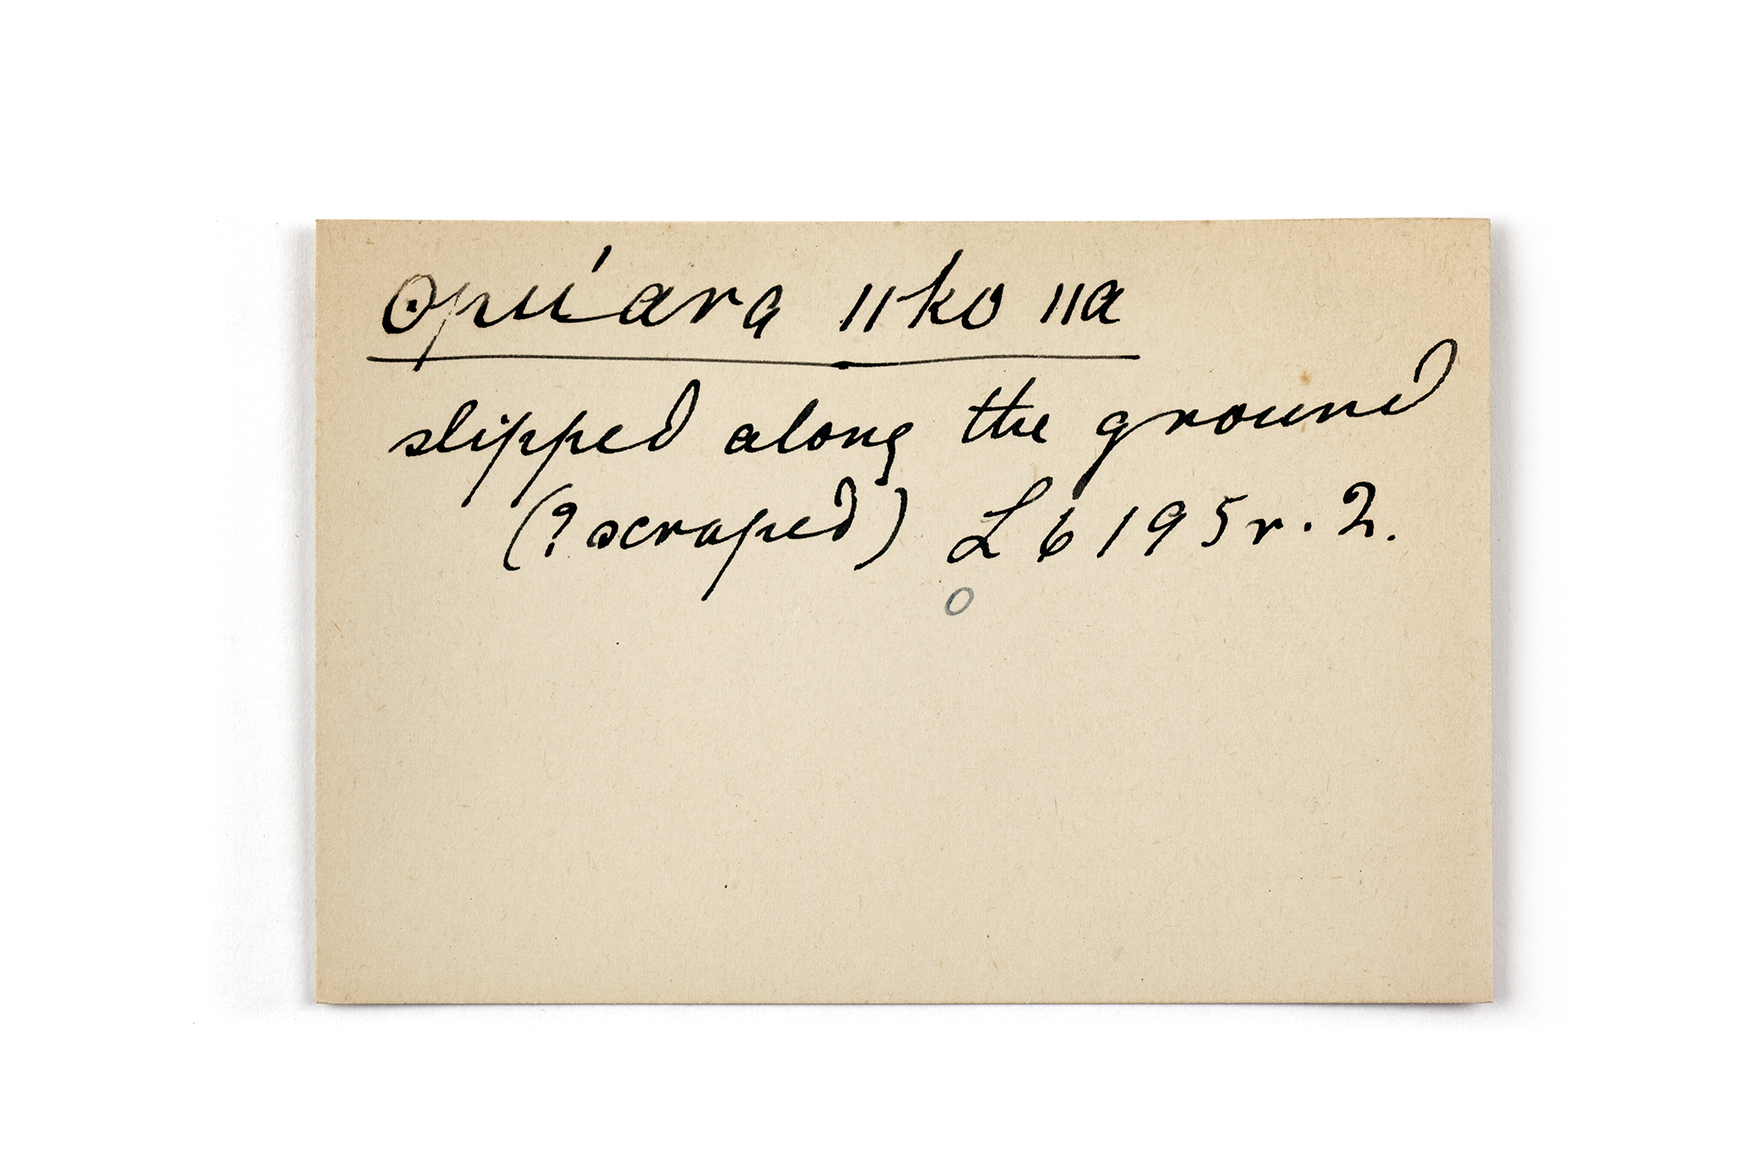 Opuárra ǁko ǁa
slipped along the ground
(? scraped) L 6 195 r. 2.